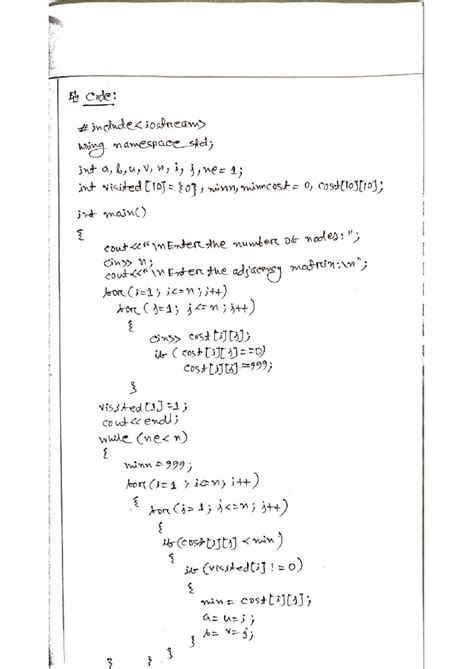 Code:
#include<iostream>
using namespace std;
int a, b, u, v, n, i, j, ne = 1;
int visited [10] = {0}, minn, minncost = 0, cost[10][10];
int main()
{
cout<<"\nEnter the number of nodes: ";
cin>> n;
cout<<"\n Enter the adjacency matrix:\n";
for (i=1; i<=n; i++)
for (j=1; j<=n; j++)
{
cin>> cost[i][j];
if (cost[i][j]==0)
cost[i][j]=999;
}
visited[1]=1;
cout<<endl;
while (ne<n)
{
minn = 999;
for (i=1; i<=n; i++)
{ for (j=1; j<=n; j++)
{
if (cost[i][j] < min)
{
if (visited[i] != 0)
{
min = cost[i][j];
a = u = i;
} b = v = j;
} } }